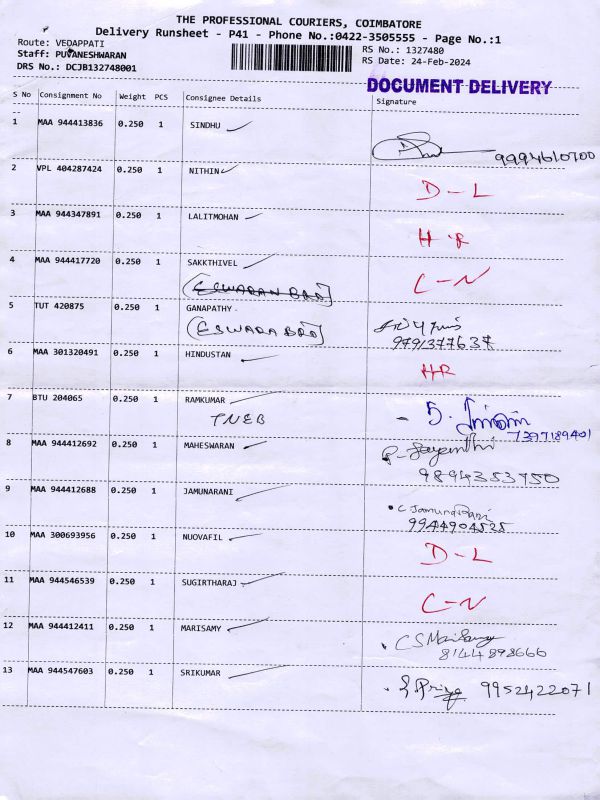 THE PROFESSIONAL COURIERS, COIMBATORE
Delivery Runsheet - P41 - Phone No.:0422-3505555 - Page No.:1
Route: VEDAPPATI
Staff: PUVANESHWARAN
DRS No.: DCJB132748001
RS No.: 1327480
RS Date: 24-Feb-2024
DOCUMENT DELIVERY
S No Consignment No Weight PCS Consignee Details Signature
1 MAA 944413836 0.250 1 SINDHU 9994610700
2 VPL 404287424 0.250 1 NITHIN D-L
3 MAA 944347891 0.250 1 LALITMOHAN H.R
4 MAA 944417720 0.250 1 SAKKTHIVEL C-N
(ESWARAN BRO)
5 TUT 420875 0.250 1 GANAPATHY
(ESWARA BRO) 9791377637
6 MAA 301320491 0.250 1 HINDUSTAN HR
7 BTU 204065 0.250 1 RAMKUMAR
TNEB 7397189401
8 MAA 944412692 0.250 1 MAHESWARAN
9894353750
9 MAA 944412688 0.250 1 JAMUNARANI C Jamuna Rani
9944904525
10 MAA 300693956 0.250 1 NUOVAFIL D-L
11 MAA 944546539 0.250 1 SUGIRTHARAJ C-N
12 MAA 944412411 0.250 1 MARISAMY
8144898666
13 MAA 944547603 0.250 1 SRIKUMAR S Priya 9952422071